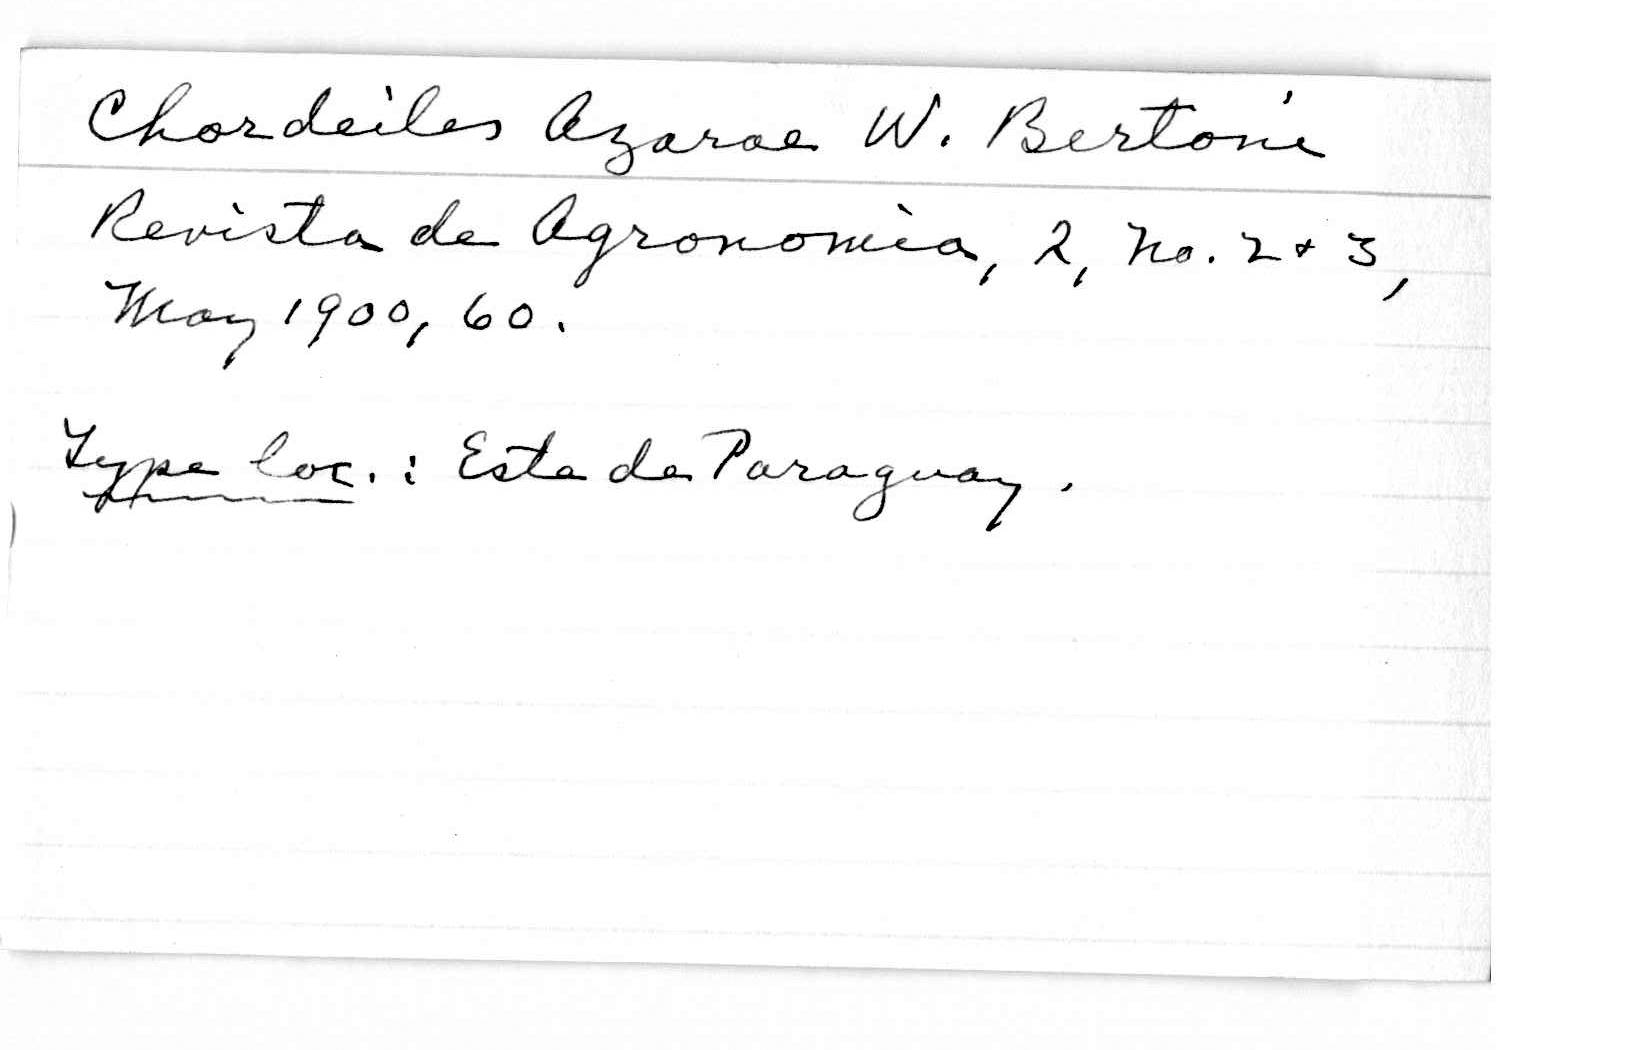 Chordeiles Azarae W. Bertoni
Revista de Agronomia, 2, No. 2 + 3,
May 1900, 60.
Type loc.: Este de Paraguay.